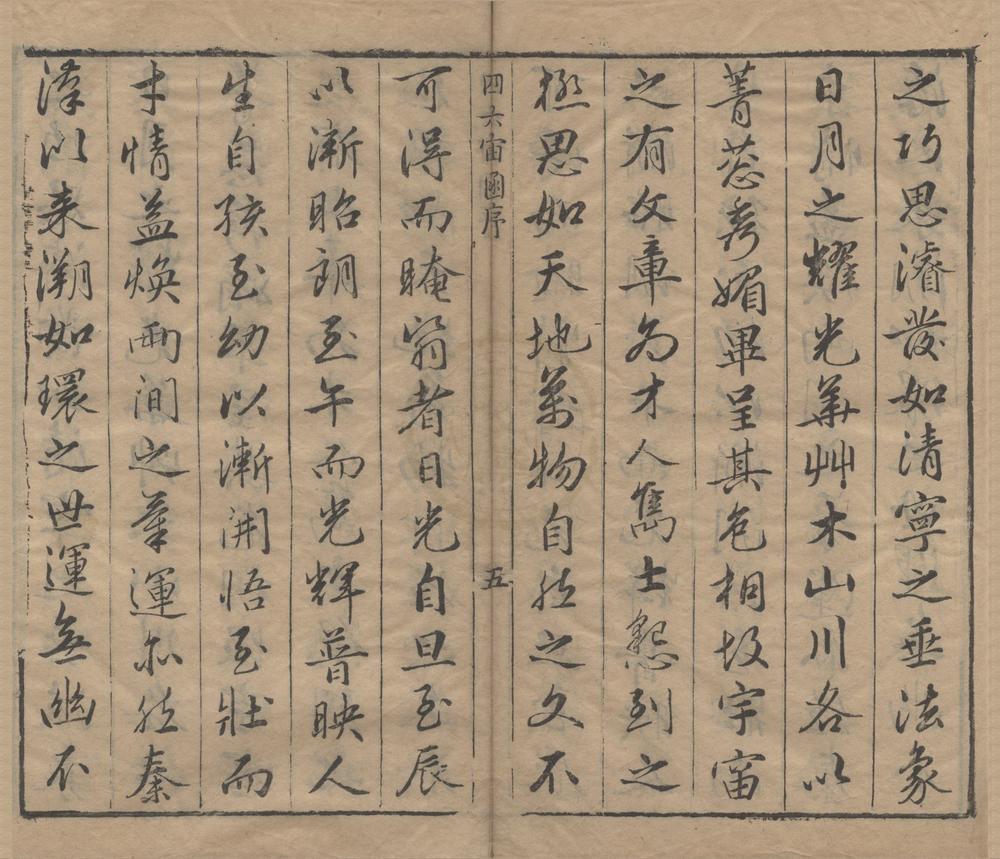 之巧思濬發如清寧之垂法象
日月之耀光華艸木山川各以
菁蔥秀媚畢呈其色相故宇宙
之有文章為才人雋士懇到之
極思如天地萬物自然之文不
四六宙函序
五
可得而晻翳者日光自旦至辰
以漸昭朗至午而光輝普映人
生自孩至幼以漸開悟至壯而
才情益煥兩間之筆運亦然秦
漢以来溯如環之世運無幽不